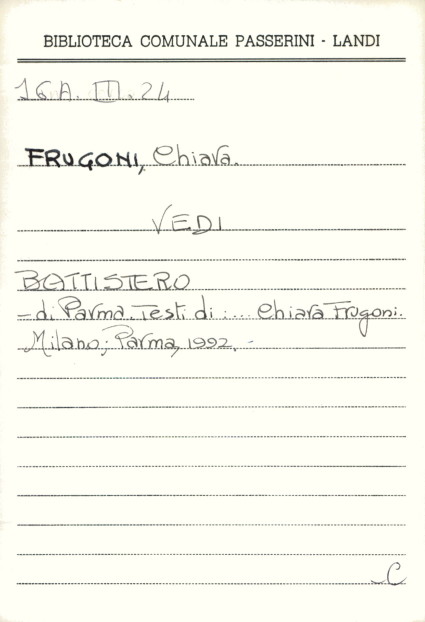 BIBLIOTECA COMUNALE PASSERINI - LANDI
16A. III. 24
FRUGONI, Chiara.
VEDI
BATTISTERO
- di Parma. Testi di: ... Chiara Frugoni.
Milano; Parma, 1992. -
C